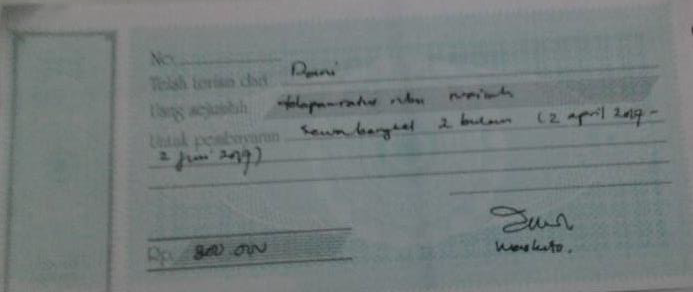 No.
Telah terima dari Dani
Uang sejumlah delapanratus ribu rupiah
Untuk pembayaran Sewa bengkel 2 bulan (2 april 2019 -
2 juni 2019)
Rp. 800.000